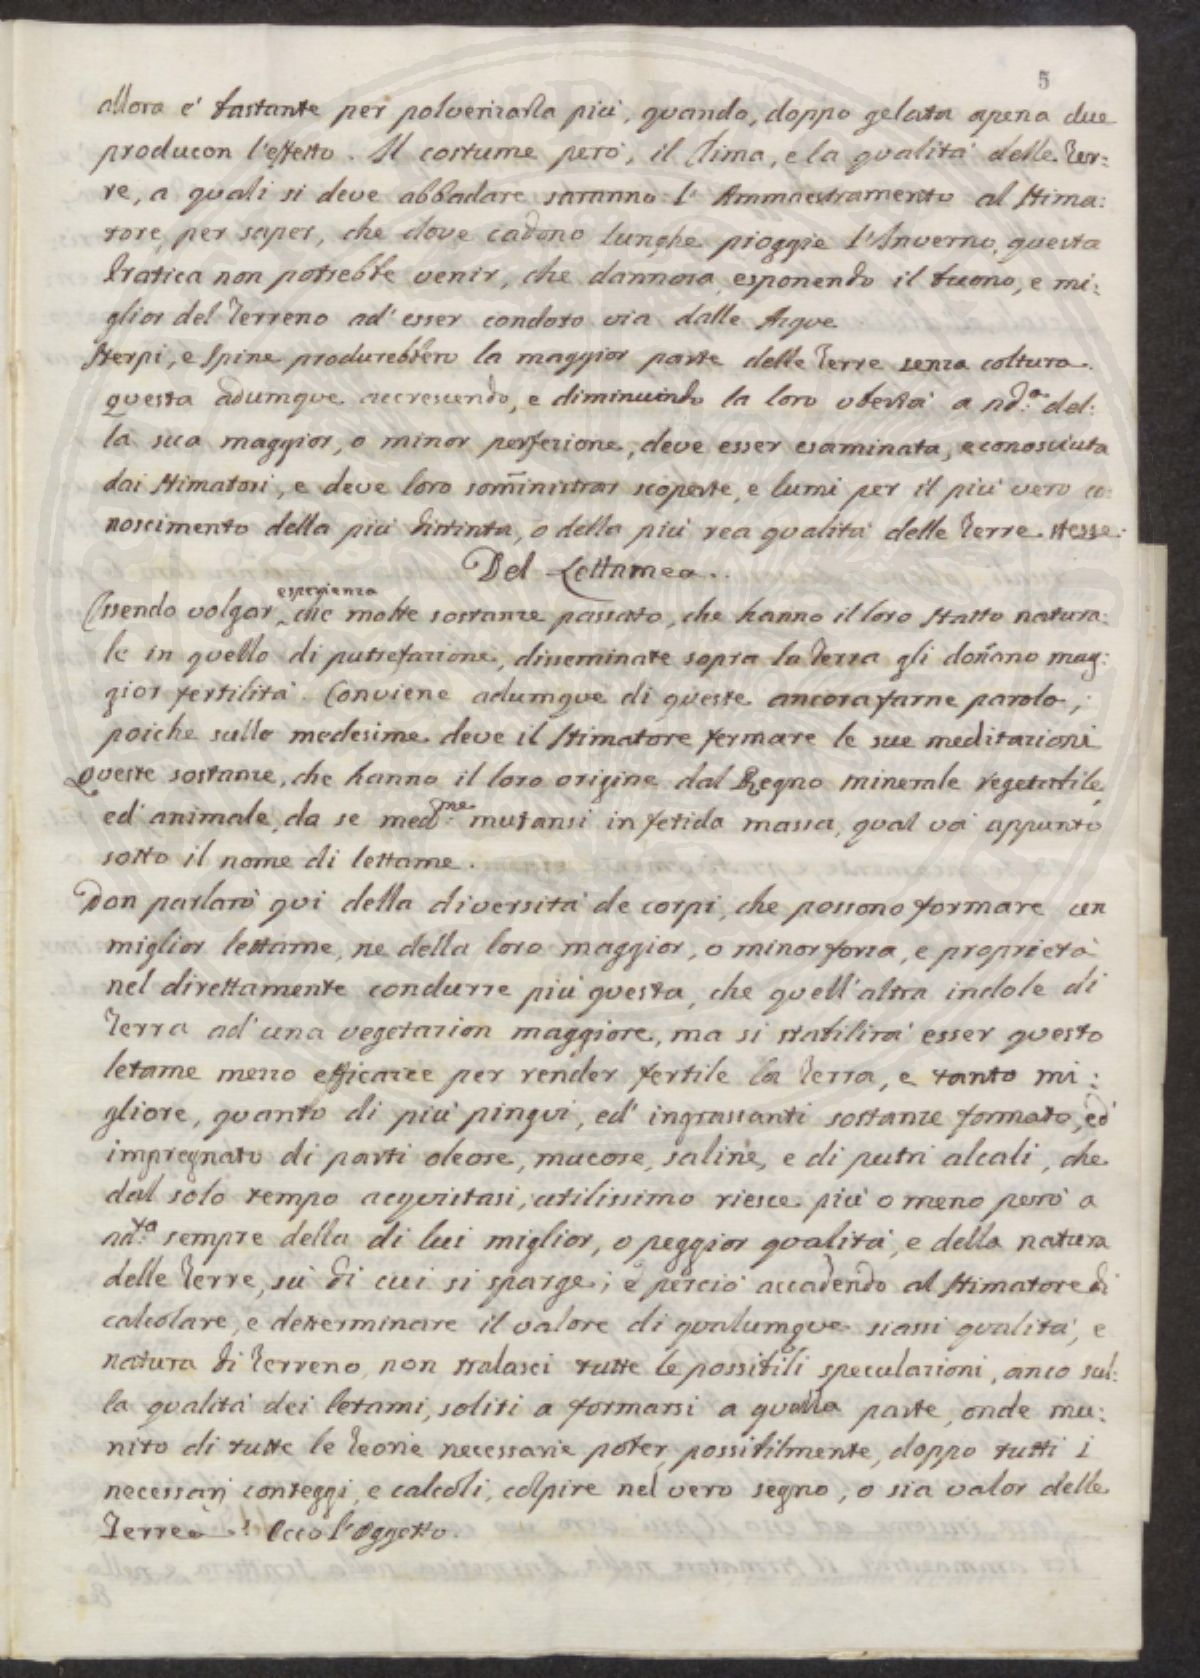 5
allora e' bastante per polverizarla più, quando, doppo gelata apena due
producon l'effetto. Il costume però, il Clima, e la qualità delle Ter:
re, a quali si deve abbadare saranno l'Ammaestramento al Stima:
tore, per saper, che dove cadono lunghe pioggie l'Inverno, questa
Pratica non potrebbe venir, che dannosa esponendo il buono, e mi:
glior del Terreno ad' esser condoto via dalle Acque
Sterpi, e Spine produrebbero la maggior parte delle Terre senza coltura.
questa adumque accrescendo, e diminuindo la loro ubertà a nd.a del:
la sua maggior, o minor perfezione, deve esser esaminata, e conosciuta
dai Stimatori, e deve loro som̄inistrar scoperte, e lumi per il più vero co:
noscimento della più distinta, o della più rea qualità delle Terre stesse:
Del Lettamea..
Essendo volgar esperienza che molte sostanze passato, che hanno il loro Statto natura:
le in quello di putrefazione, disseminate sopra la Terra gli don̄ano mag:
gior fertilità. Conviene adumque di queste ancora farne parola;
poiche sulle medesime deve il Stimatore fermare le sue meditazioni
Queste sostanze, che hanno il loro origine dal Regno minerale vegetabile,
ed' animale, da se med.me mutansi in fetida massa, qual và appunto
sotto il nome di lettame.
Non parlarò qui della diversità de corpi, che possono formare un
miglior lettame, ne della loro maggior, o minor forza, e proprietà
nel direttamente condurre più questa, che quell'altra indole di
Terra ad' una vegetazion maggiore, ma si stabilirà esser questo
letame mezzo efficacce per render fertile la Terra, e tanto mi:
gliore, quanto di più pingui, ed' ingrassanti sostanze formato, ed'
impregnato di parti oleose, mucose, saline, e di putri alcali, che
dal solo tempo acquistasi, utilissimo riesce più o meno però a
nd.ta sempre della di lui miglior, o peggior qualità, e della natura
delle Terre, sù di cui si sparge; e perciò accadendo al Stimatore di
calcolare, e determinare il valore di qualumque siassi qualità, e
natura di Terreno, non tralasci tutte le possibili speculazioni, anco sul:
la qualità dei letami, soliti a formarsi a quella parte, onde mu:
nito di tutte le Teorie necessarie poter possibilmente, doppo tutti i
necessarj conteggi, e calcoli, colpire nel vero segno, o sia valor delle
Terre. Ecco l'Oggetto.